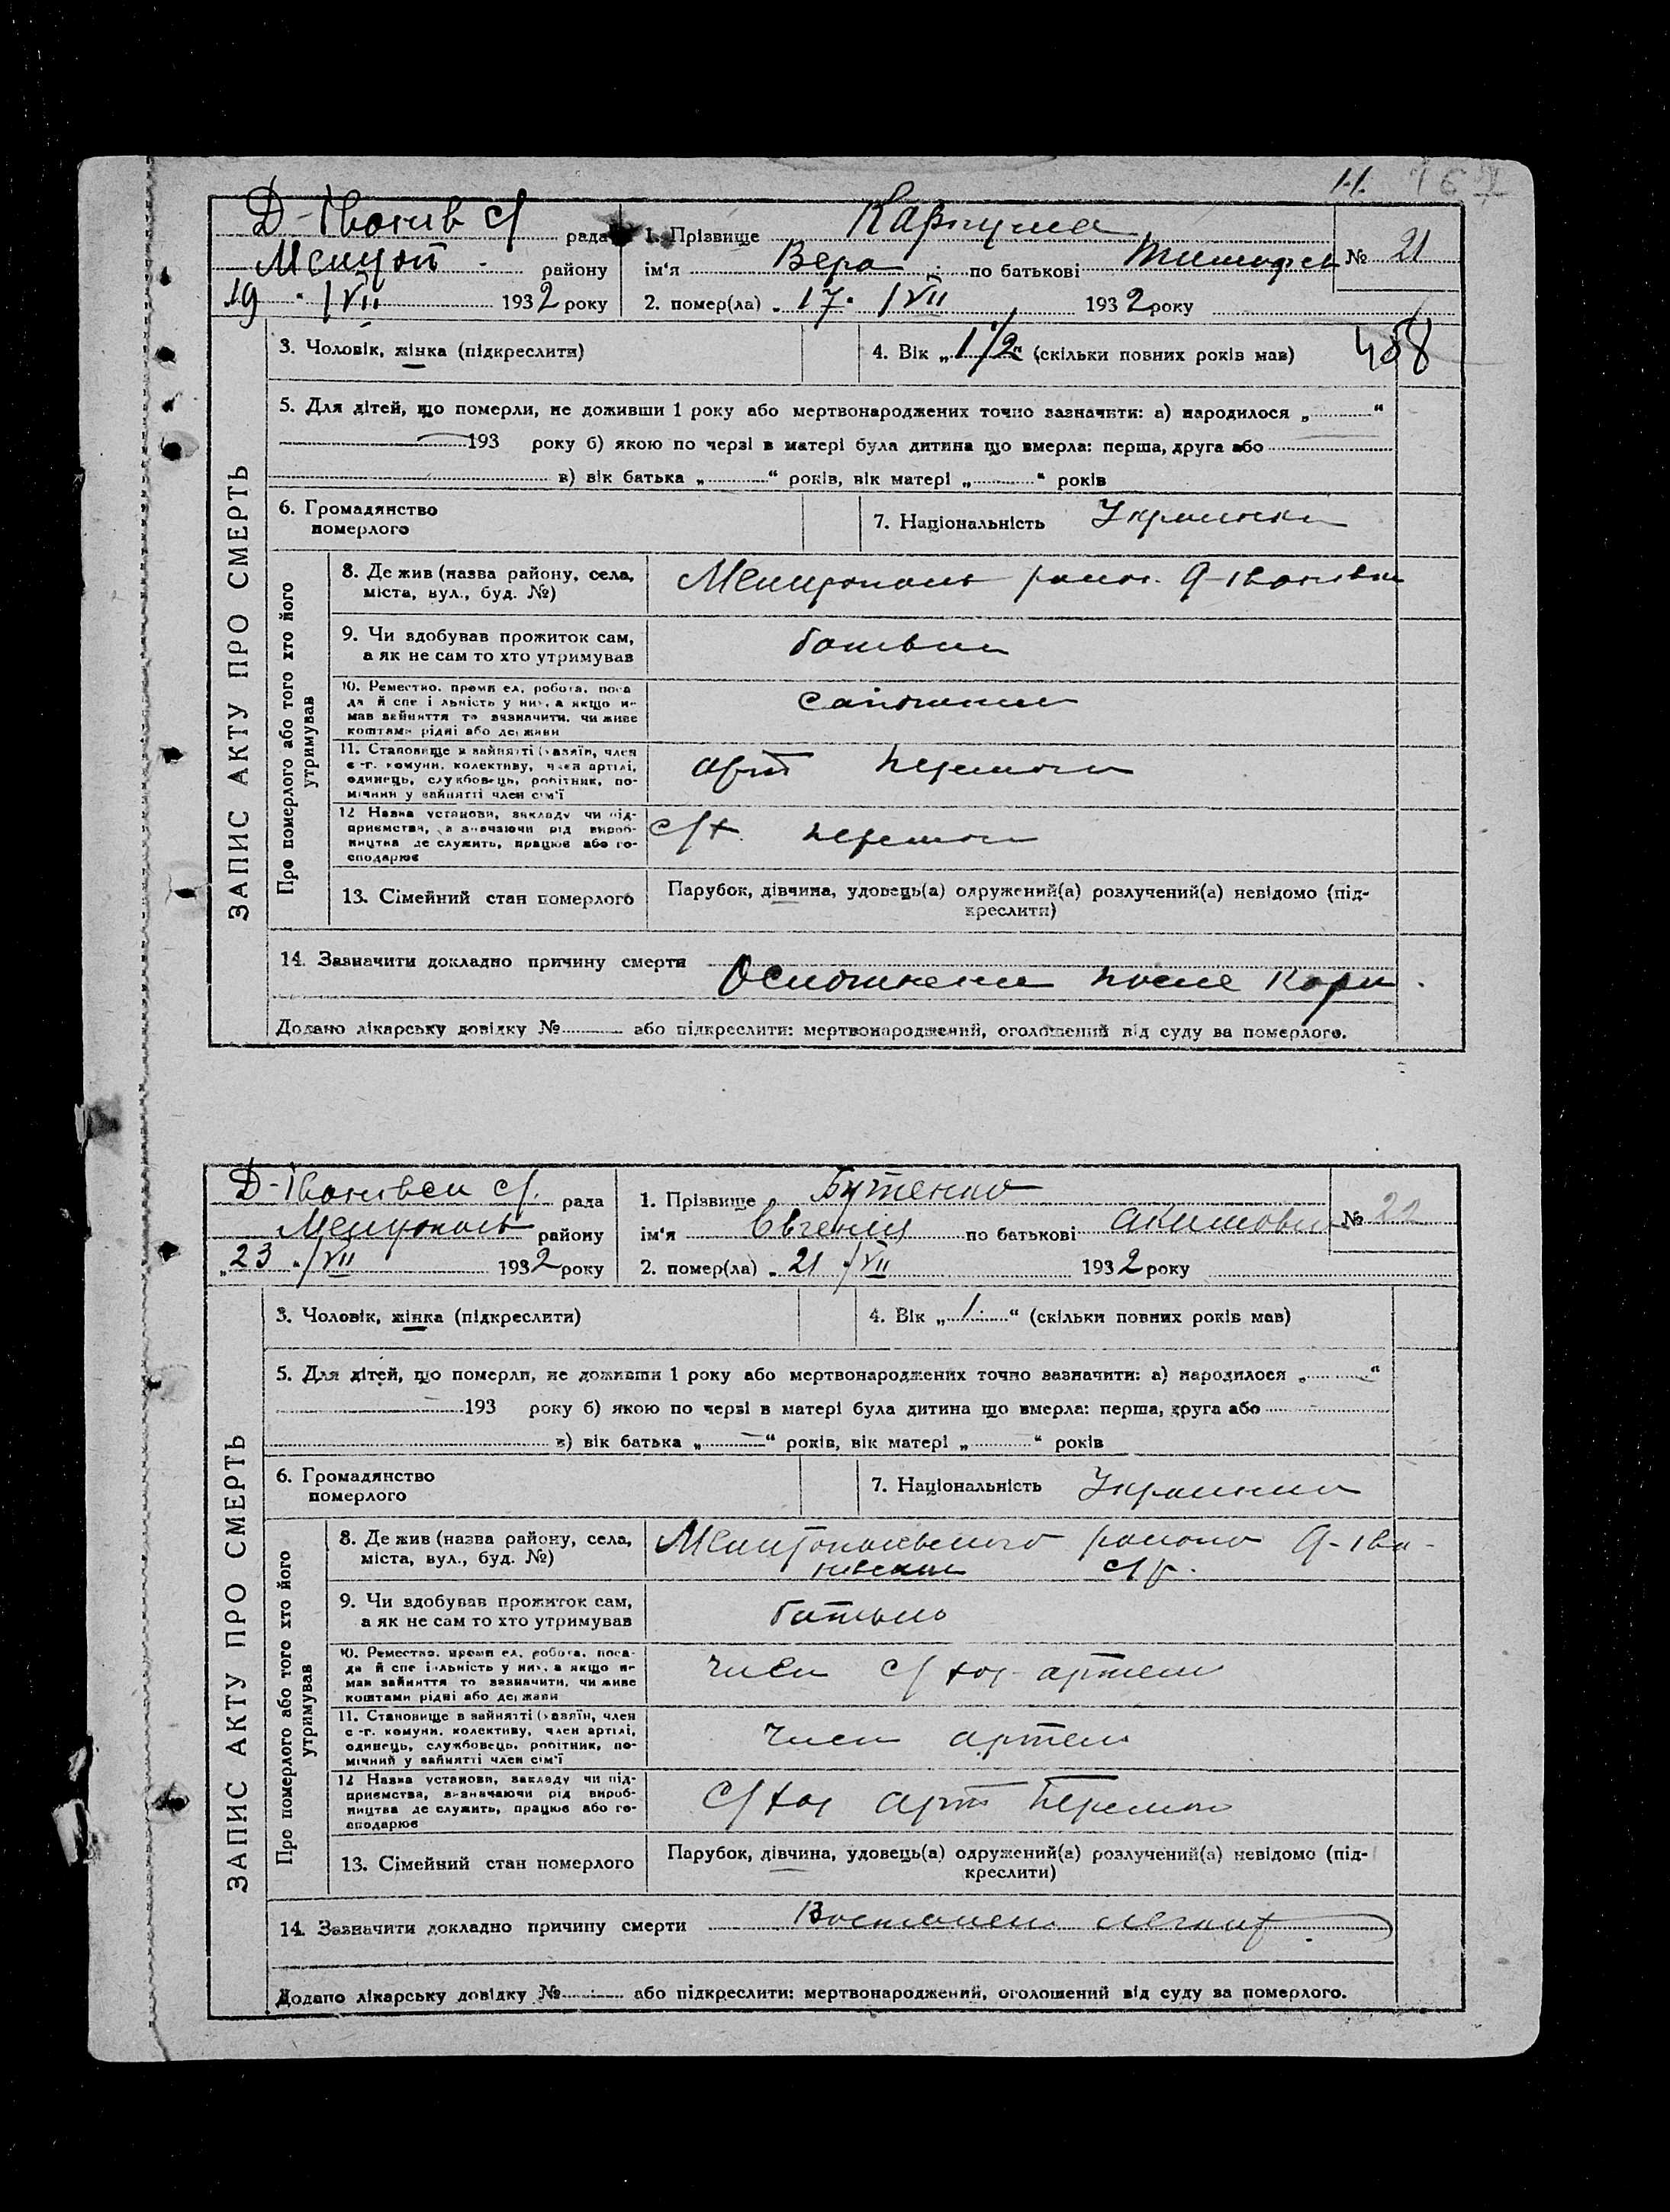 167
Д-Іванів с/ рада
Мелітоп району
19 · / VII 1932 року
1. Прізвище
ім'я Вера по батькові Тимофеев
№ 21
2. помер(ла) „ 17 · / VII 1932 року
3. Чоловік, жінка (підкреслити)
4. Вік „1 1/2“ (скільки повних років мав)
5. Для дітей, що померли, не доживши 1 року або мертвонароджених точно зазначити: а) народилося „ “
193 року б) якою по черзі в матері була дитина що вмерла: перша, друга або
в) вік батька „ “ років, вік матері „ “ років
6. Громадянство
померлого
7. Національність Украинка
ЗАПИС АКТУ ПРО СМЕРТЬ
Про померлого або того хто його
утримував
8. Де жив (назва району, села,
міста, вул., буд. №)
Мелитополь район. Д-Іванівка
9. Чи здобував прожиток сам,
а як не сам то хто утримував
батьки
10. Ремество, промисел, робота, поса
да й спеціяльність у ній, а якщо не
мав зайняття то зазначити, чи живе
коштами рідні або держави
11. Становище в зайнятті (хазяїн, член
с.-г. комуни, колективу, член артілі,
одинець, службовець, робітник, по-
мічний у зайнятті член сім'ї
арт Перемога
12 Назва установи, закладу чи під-
приємства, зазначаючи рід вироб-
ництва де служить, працює або го-
сподарює
с/х. Перемог
13. Сімейний стан померлого
Парубок, дівчина, удовець(а) одружений(а) розлучений(а) невідомо (під-
креслити)
14. Зазначити докладно причину смерти
Осложнение после Кори.
Додано лікарську довідку № або підкреслити: мертвонароджений, оголошений від суду за померлого.
Д-Іванівськ с/. рада
Мелитополь району
„23 · / VII 1932 року
1. Прізвище Бутенко
ім'я Євгенія по батькові Акимовна
№ 22
2. помер(ла) „ 21 · / VII 1932 року
3. Чоловік, жінка (підкреслити)
4. Вік „1“ (скільки повних років мав)
5. Для дітей, що померли, не доживши 1 року або мертвонароджених точно зазначити: а) народилося „ “
193 року б) якою по черзі в матері була дитина що вмерла: перша, друга або
в) вік батька „ “ років, вік матері „ “ років
6. Громадянство
померлого
7. Національність Украинка
ЗАПИС АКТУ ПРО СМЕРТЬ
Про померлого або того хто його
утримував
8. Де жив (назва району, села,
міста, вул., буд. №)
Мелитопольского района Д-Іва-
нівська с/р.
9. Чи здобував прожиток сам,
а як не сам то хто утримував
батько
10. Ремество, промисел, робота, поса-
да й спеціяльність у ній, а якщо не
мав зайняття то зазначити, чи живе
коштами рідні або держави
член с/хоз артели
11. Становище в зайнятті (хазяїн, член
с.-г. комуни, колективу, член артілі,
одинець, службовець, робітник, по-
мічний у зайнятті член сім'ї
член артели
12 Назва установи, закладу чи під-
приємства, зазначаючи рід вироб-
ництва де служить, працює або го-
сподарює
С/хоз арт Перемога
13. Сімейний стан померлого
Парубок, дівчина, удовець(а) одружений(а) розлучений(а) невідомо (під-
креслити)
14. Зазначити докладно причину смерти Воспален легких
Додано лікарську довідку № або підкреслити: мертвонароджений, оголошений від суду за померлого.